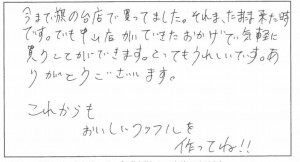 今まで旗の台店で買ってました。それも、たまに来た時
です。でも中山店ができたおかげで気軽に
買うことができます。とってもうれしいです。あ
りがとうございます。
これからも
おいしいワッフルを
作ってね!!